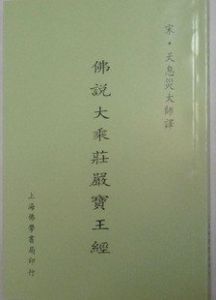 宋·天息災大師譯
佛說大乘莊嚴寶王經
上海佛學書局印行